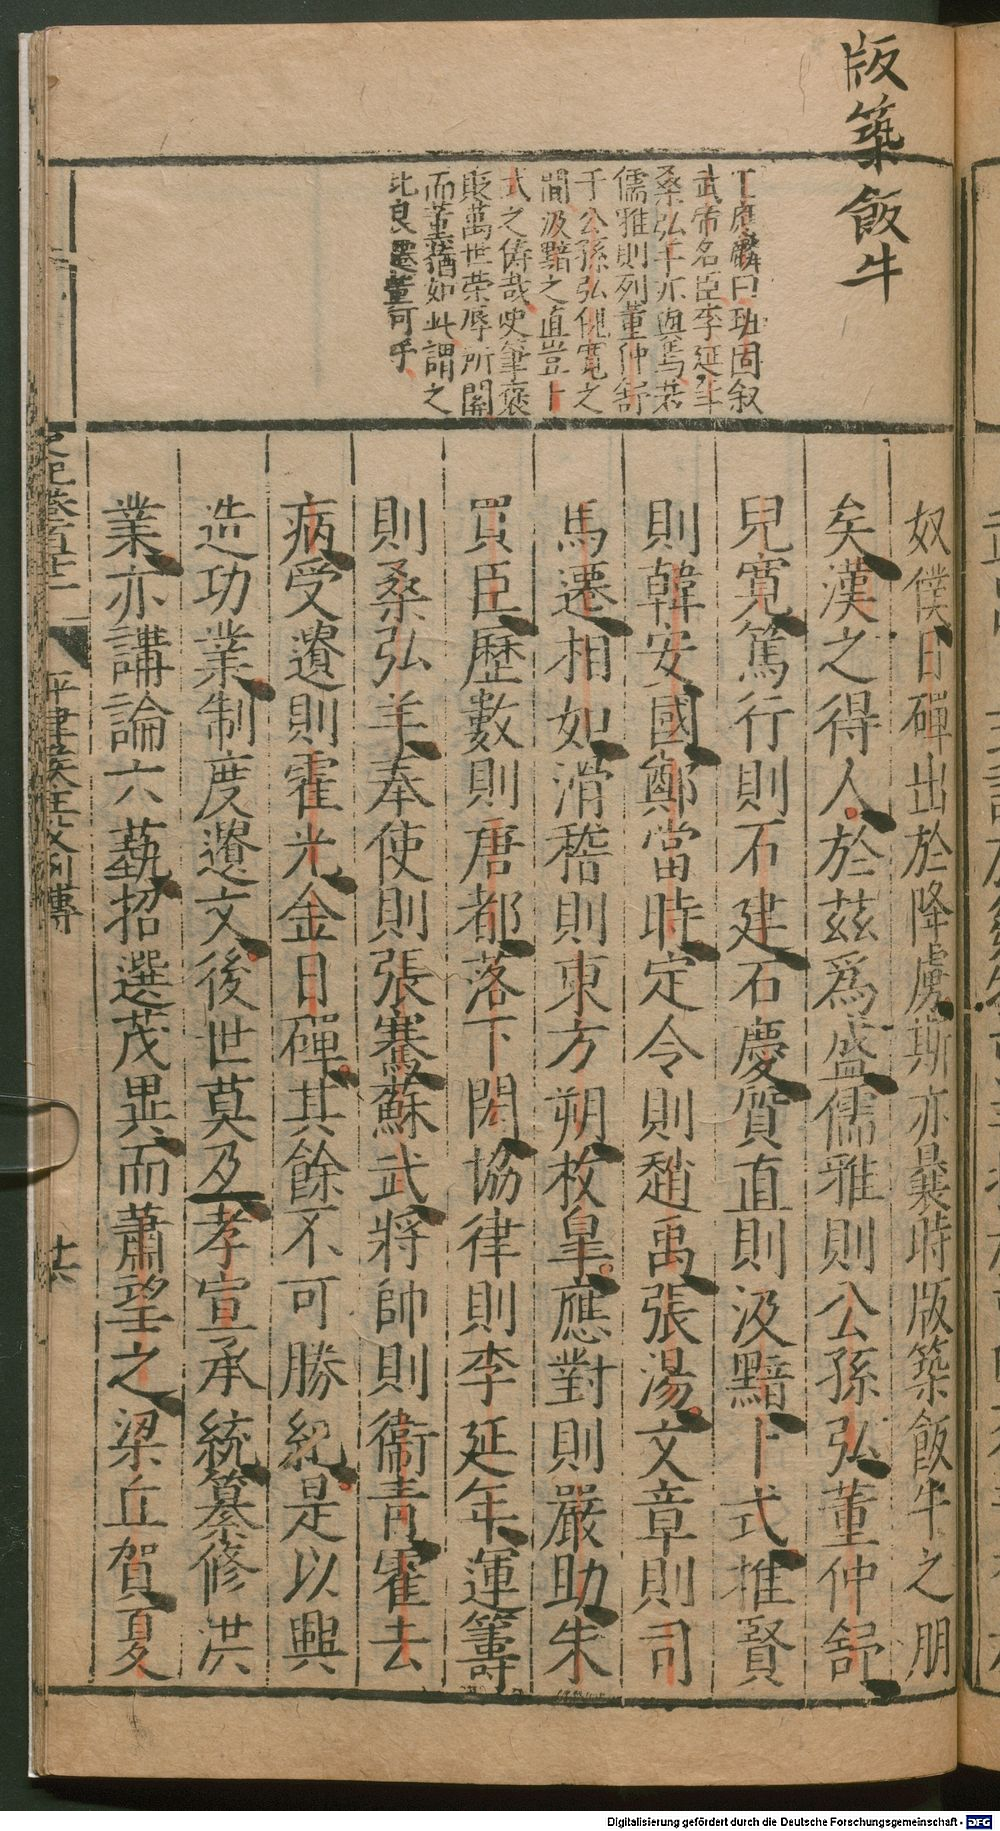 版築飯牛
丁應麟曰班固叙
武帝名臣李延年
桑弘羊亦與焉若
儒雅則列董仲舒
于公孫弘倪寬之
間汲黯之直豈卜
式之儔哉史筆褒
貶萬世榮辱所關
而董猶如此謂之
此良遷董可乎
奴僕日磾出於降虜斯亦曩時版築飯牛之朋
矣漢之得人於茲爲盛儒雅則公孫弘董仲舒
兒寬篤行則石建石慶質直則汲黯卜式推賢
則韓安國鄭當時定令則趙禹張湯文章則司
馬遷相如滑稽則東方朔枚皐應對則嚴助朱
買臣歷數則唐都落下閎協律則李延年運籌
則桑弘羊奉使則張騫蘇武將帥則衞青霍去
病受遺則霍光金日磾其餘不可勝紀是以興
造功業制度遺文後世莫及孝宣承統纂修洪
業亦講論六藝招選茂異而蕭望之梁丘賀夏
史記卷百十二 平津矦主父列傳 廿六
Digitalisierung gefördert durch die Deutsche Forschungsgemeinschaft - DFG